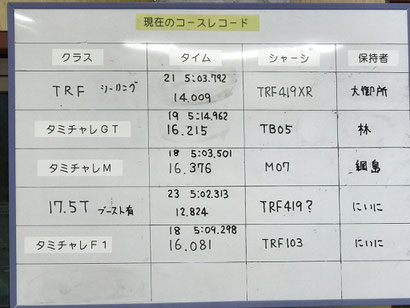 現在のコースレコード
クラス タイム シャーシ 保持者
TRF シーリング 21 5:03.792 TRF419XR 大御所
14.009
タミチャレGT 19 5:14.962 TB05 林
16.215
タミチャレM 18 5:03.501 M07 綱島
16.376
17.5T ブースト有 23 5:02.313 TRF419? にいに
12.824
タミチャレF1 18 5:04.298 TRF103 にいに
16.081